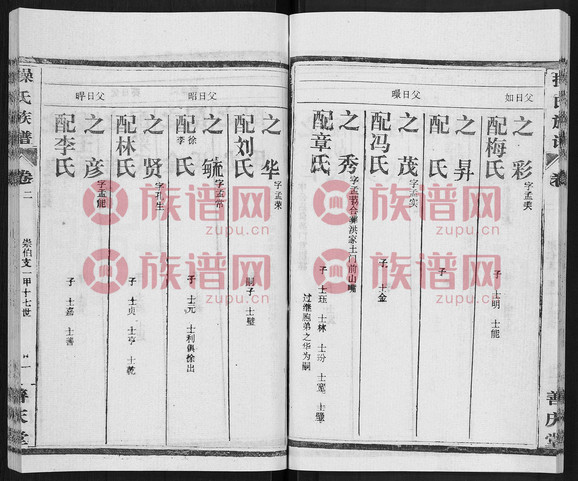 父曰如
之彩
字孟美
配梅氏
子 士明 士能
之昇
配 氏
子
父曰㬇
之茂
字孟实
配冯氏
子 士金
之秀
字孟 合葬洪家土门前山嘴
配章氏
子 士珏 士林 士玢 士寔 士肇
过继胞弟之华为嗣
善庆堂
之华
字孟荣
配刘氏
嗣子 士肇
父曰昭
之毓
字孟常
配徐李氏
子 士元 士利俱徐出
之贤
字孔生
配林氏
子 士贞 士亨 士乾
父曰畔
之彦
字孟能
配李氏
子 士嘉 士善
操氏族谱
卷二
崇伯支一甲十七世
善庆堂
族谱网
zupu.cn
族谱网
zupu.cn
族谱网
zupu.cn
族谱网
zupu.cn